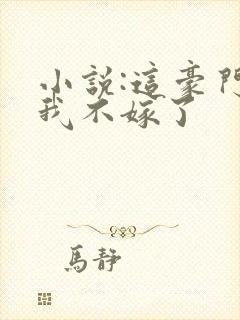 小說:這豪門
我不嫁了
馬靜